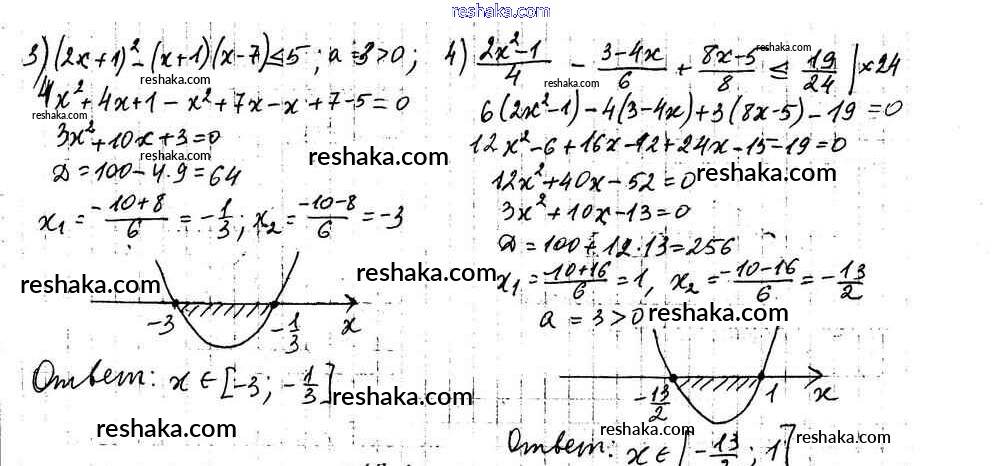 reshaka.com
3) (2x+1)² - (x+1)(x-7) ≤ 5; a=3>0;
reshaka.com
4x²+4x+1-x²+7x-x+7-5=0
reshaka.com
3x²+10x+3=0
reshaka.com
D=100-4·9=64
reshaka.com
x₁= (-10+8)/6 = -1/3; x₂= (-10-8)/6 = -3
reshaka.com
-3 -1/3 x
Ответ: x∈[-3; -1/3]
reshaka.com
reshaka.com
4) (2x²-1)/4 - (3-4x)/6 + (8x-5)/8 ≤ 19/24 | ×24
reshaka.com
reshaka.com
6(2x²-1)-4(3-4x)+3(8x-5)-19=0
12x²-6+16x-12+24x-15-19=0
reshaka.com
12x²+40x-52=0
3x²+10x-13=0
D=100+12·13=256
reshaka.com
x₁= (-10+16)/6 = 1, x₂= (-10-16)/6 = -13/2
a=3>0
reshaka.com
-13/2 1 x
reshaka.com
Ответ: x∈[-13/2; 1]
reshaka.com